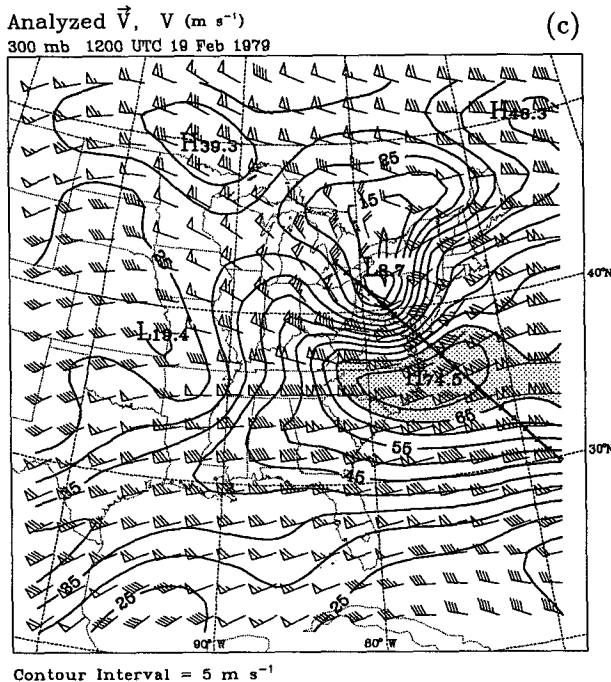 Analyzed V⃗, V (m s⁻¹)
(c)
300 mb 1200 UTC 19 Feb 1979
H48.3
H39.3
25
15
L8.7
40°N
25
L19.4
H74.5
65
55
30°N
45
35
35
25
25
90° W
80° W
Contour Interval = 5 m s⁻¹